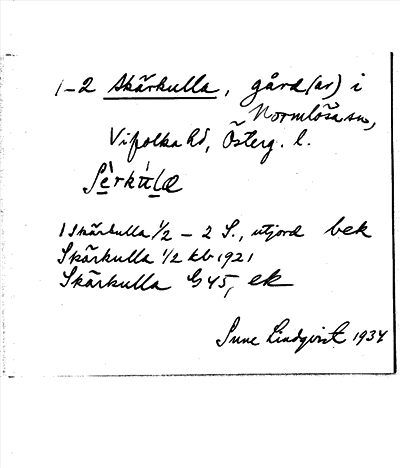 1-2 Skärkulla, gård(ar) i
Normlösa sn,
Vifolka hd, Österg. l.
1 Skärkulla 1/2 - 2 S., utjord bek
Skärkulla 1/2 kb 1921
Skärkulla G45, ek
Sune Lindqvist 1934